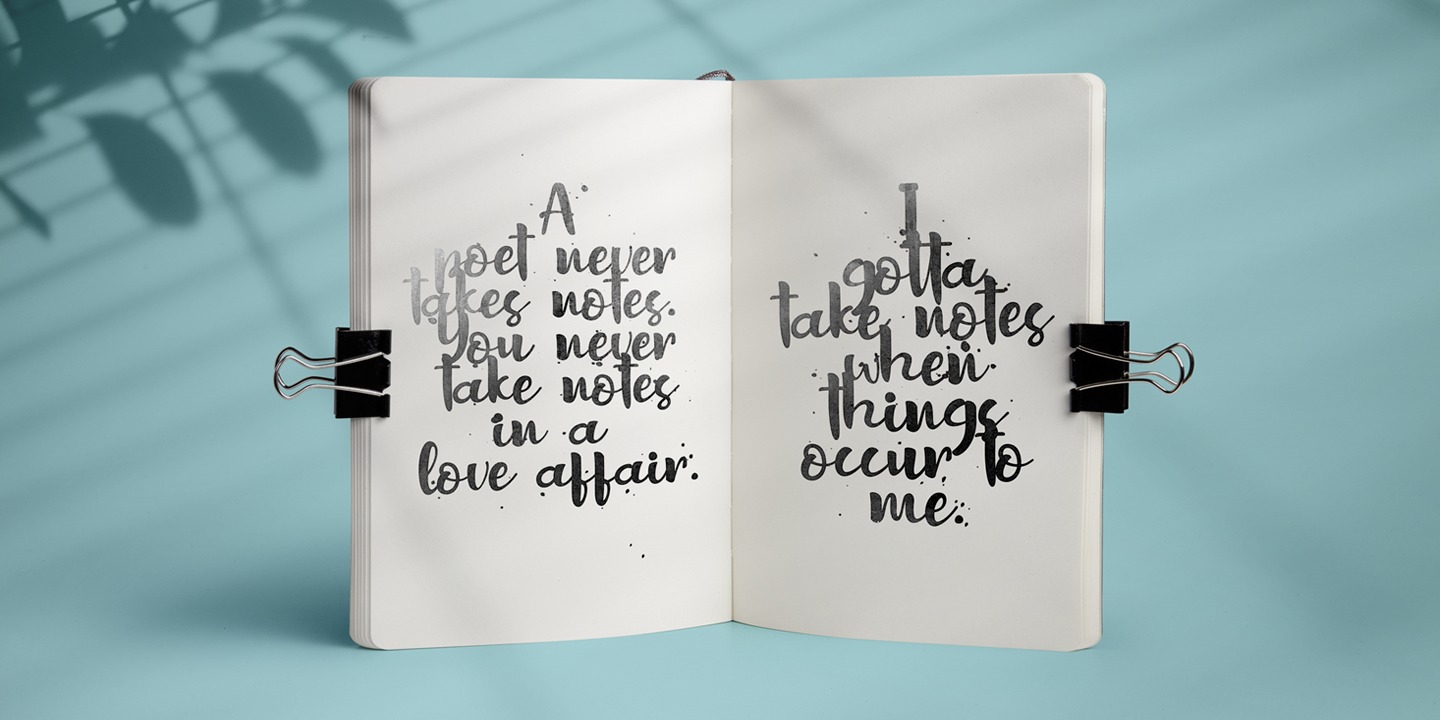 A
poet never
takes notes.
You never
take notes
in a
love affair.
I
gotta
take notes
when
things
occur to
me.